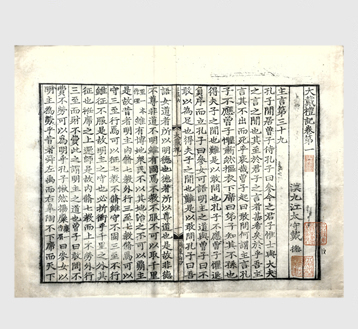 大戴禮記卷第一
漢九江太守戴德
主言第三十九
孔子閒居曾子侍孔子曰參今之君子惟士與大夫
之言之閒也其至於君子之言者甚希矣於乎吾主
言其不出而死乎哀哉曾子起曰敢問何謂主言孔
子不應曾子懼肅然摳衣下席曰弟子知其不孫也
得夫子之閒也難是以敢問也孔子不應曾子懼退
負序而立孔子曰參女可語明主之道與曾子曰不
敢以為足也得夫子之閒也難是以敢問孔子曰吾
語女道者所以明德也德者所以尊道也是故非德
不尊非道不明雖有國焉不教不服不可以取千
里雖有博地衆民不以其地治之不可以霸主
是故昔者明主內脩七教外行三至七教脩焉可以
守三至行焉可以征七教不脩雖守不固三至不行
雖征不服是故明主之守也必折衝乎千里之外其
征也衽席之上還師是故內脩七教而上不勞外行
三至而財不費此之謂明主之道也曾子曰敢問不
費不勞可以為明乎孔子愀然揚麋曰參女以
明主為勞乎昔者舜左禹而右皋陶不下席而天下